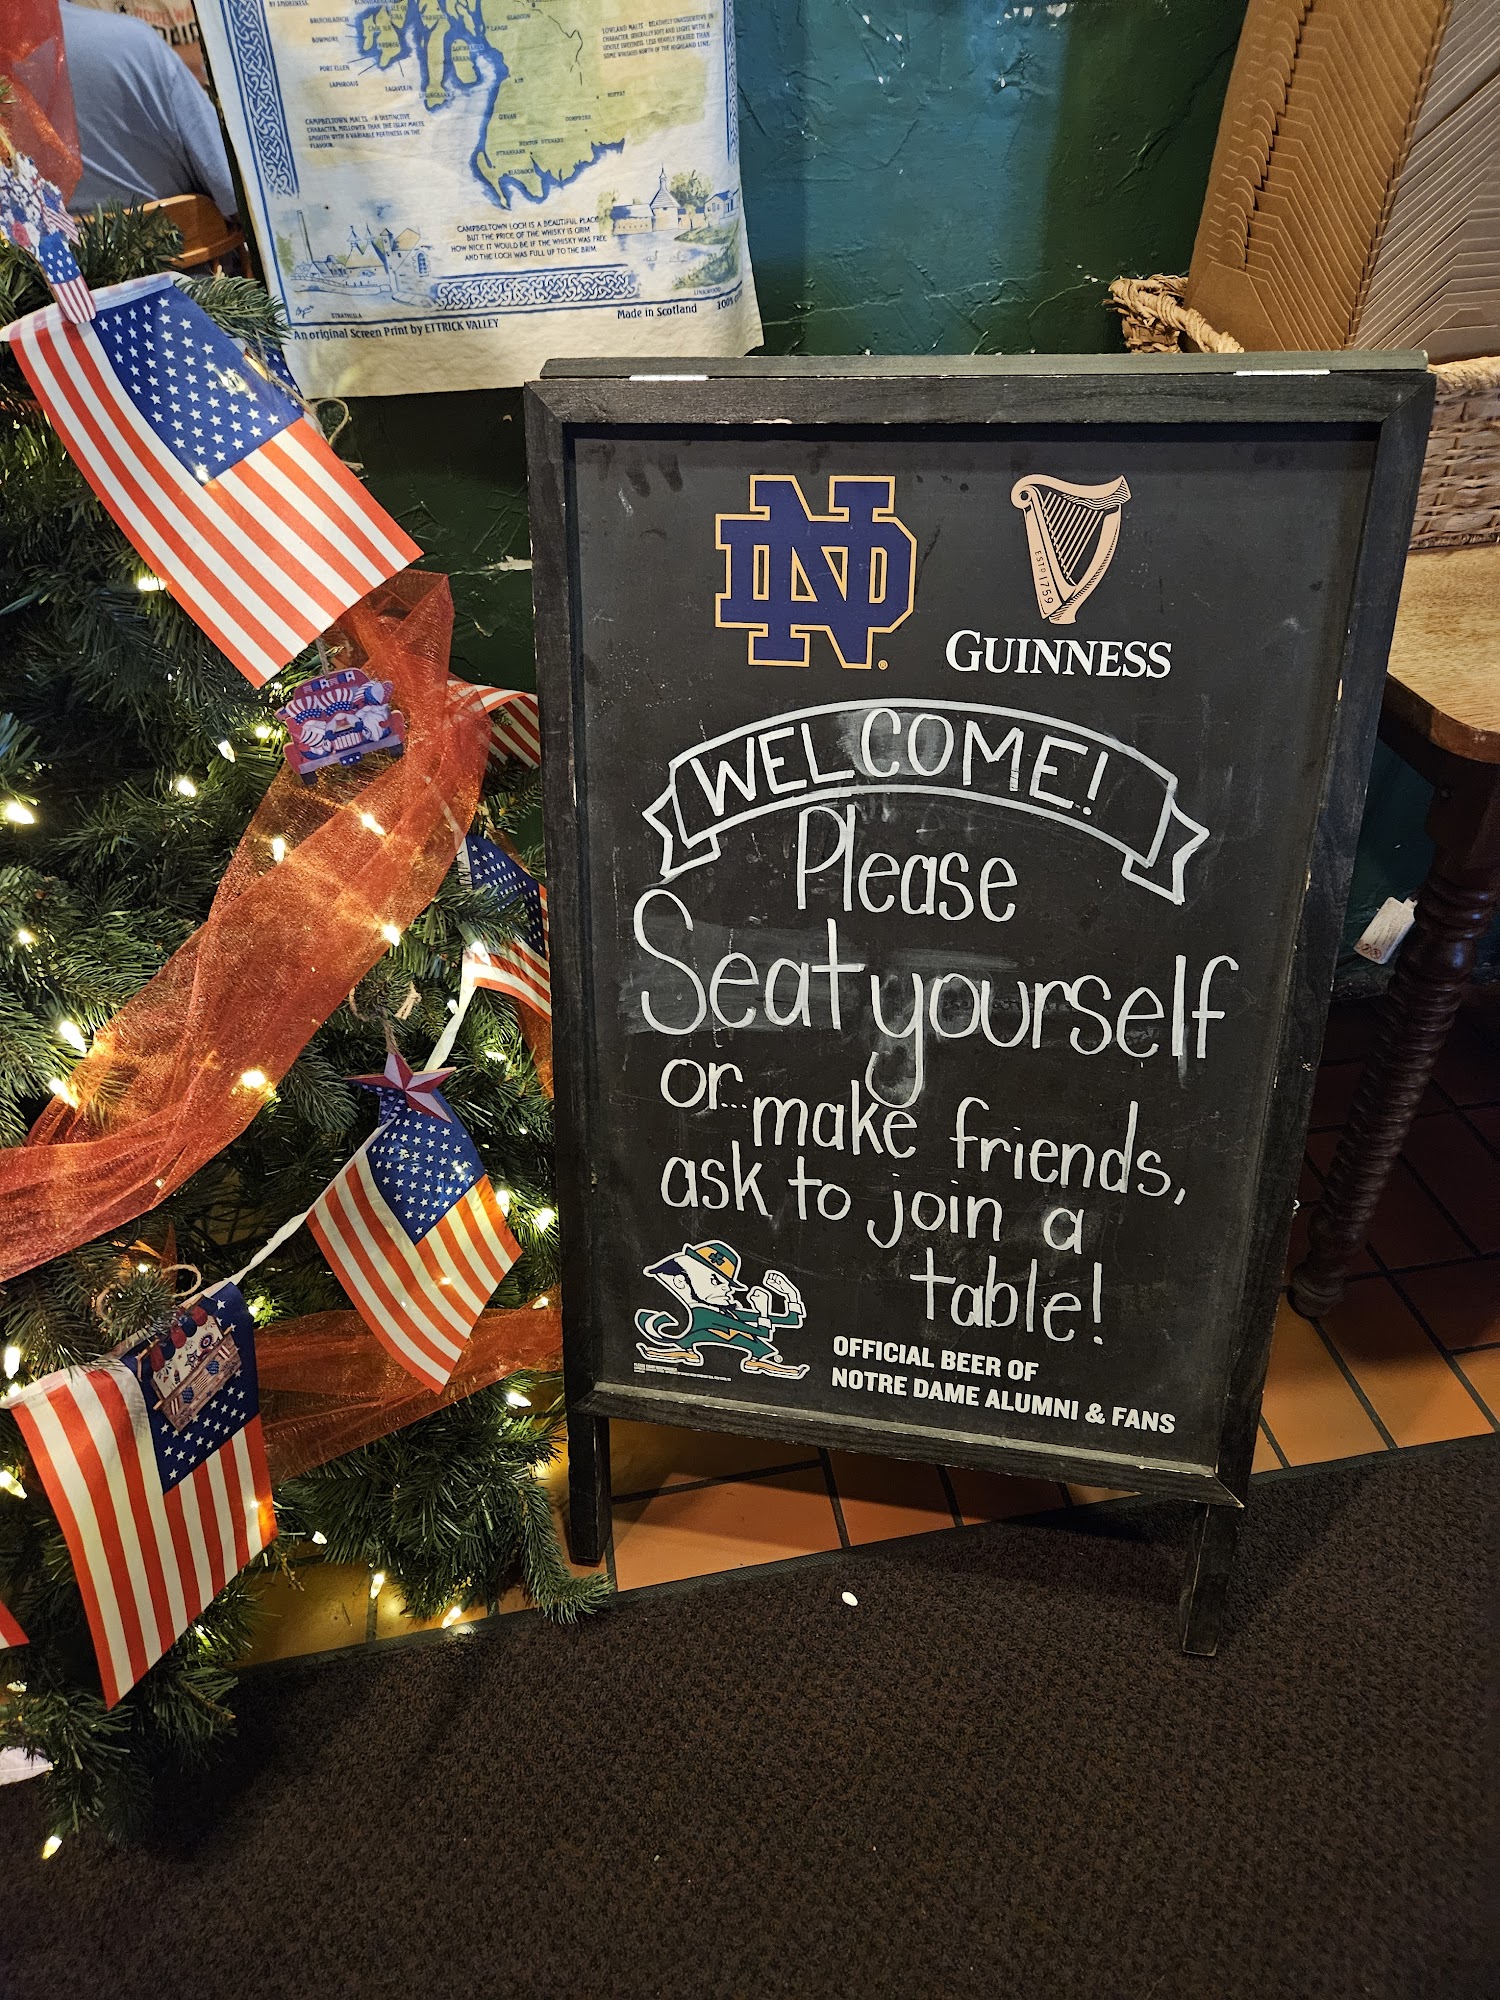 BRUICHLADDICH
BOWMORE
PORT ELLEN
LAPHROAIG
LAGAVULIN
SPRINGBANK
LOWLAND MALTS - RELATIVELY UNASSERTIVE IN
CHARACTER, GENERALLY SOFT AND LIGHT WITH A
GENTLE SWEETNESS. LESS HEAVILY PEATED THAN
SOME WHISKIES NORTH OF THE HIGHLAND LINE.
AYR
MOFFAT
GIRVAN
DUMFRIES
NEWTON STEWART
STRANRAER
BLADNOCH
CAMPBELTOWN MALTS - A DISTINCTIVE
CHARACTER, MELLOWER THAN THE ISLAY MALTS
SMOOTH WITH A VARIABLE PEATINESS IN THE
FLAVOUR.
CAMPBELTOWN LOCH IS A BEAUTIFUL PLACE
BUT THE PRICE OF THE WHISKY IS GRIM
HOW NICE IT WOULD BE IF THE WHISKY WAS FREE
AND THE LOCH WAS FULL UP TO THE BRIM.
STRATHISLA
LINKWOOD
An original Screen Print by ETTRICK VALLEY
Made in Scotland
100%
ND
®
ESTD 1759
GUINNESS
WELCOME!
Please
Seat yourself
or... make friends,
ask to join a
table!
OFFICIAL BEER OF
NOTRE DAME ALUMNI & FANS